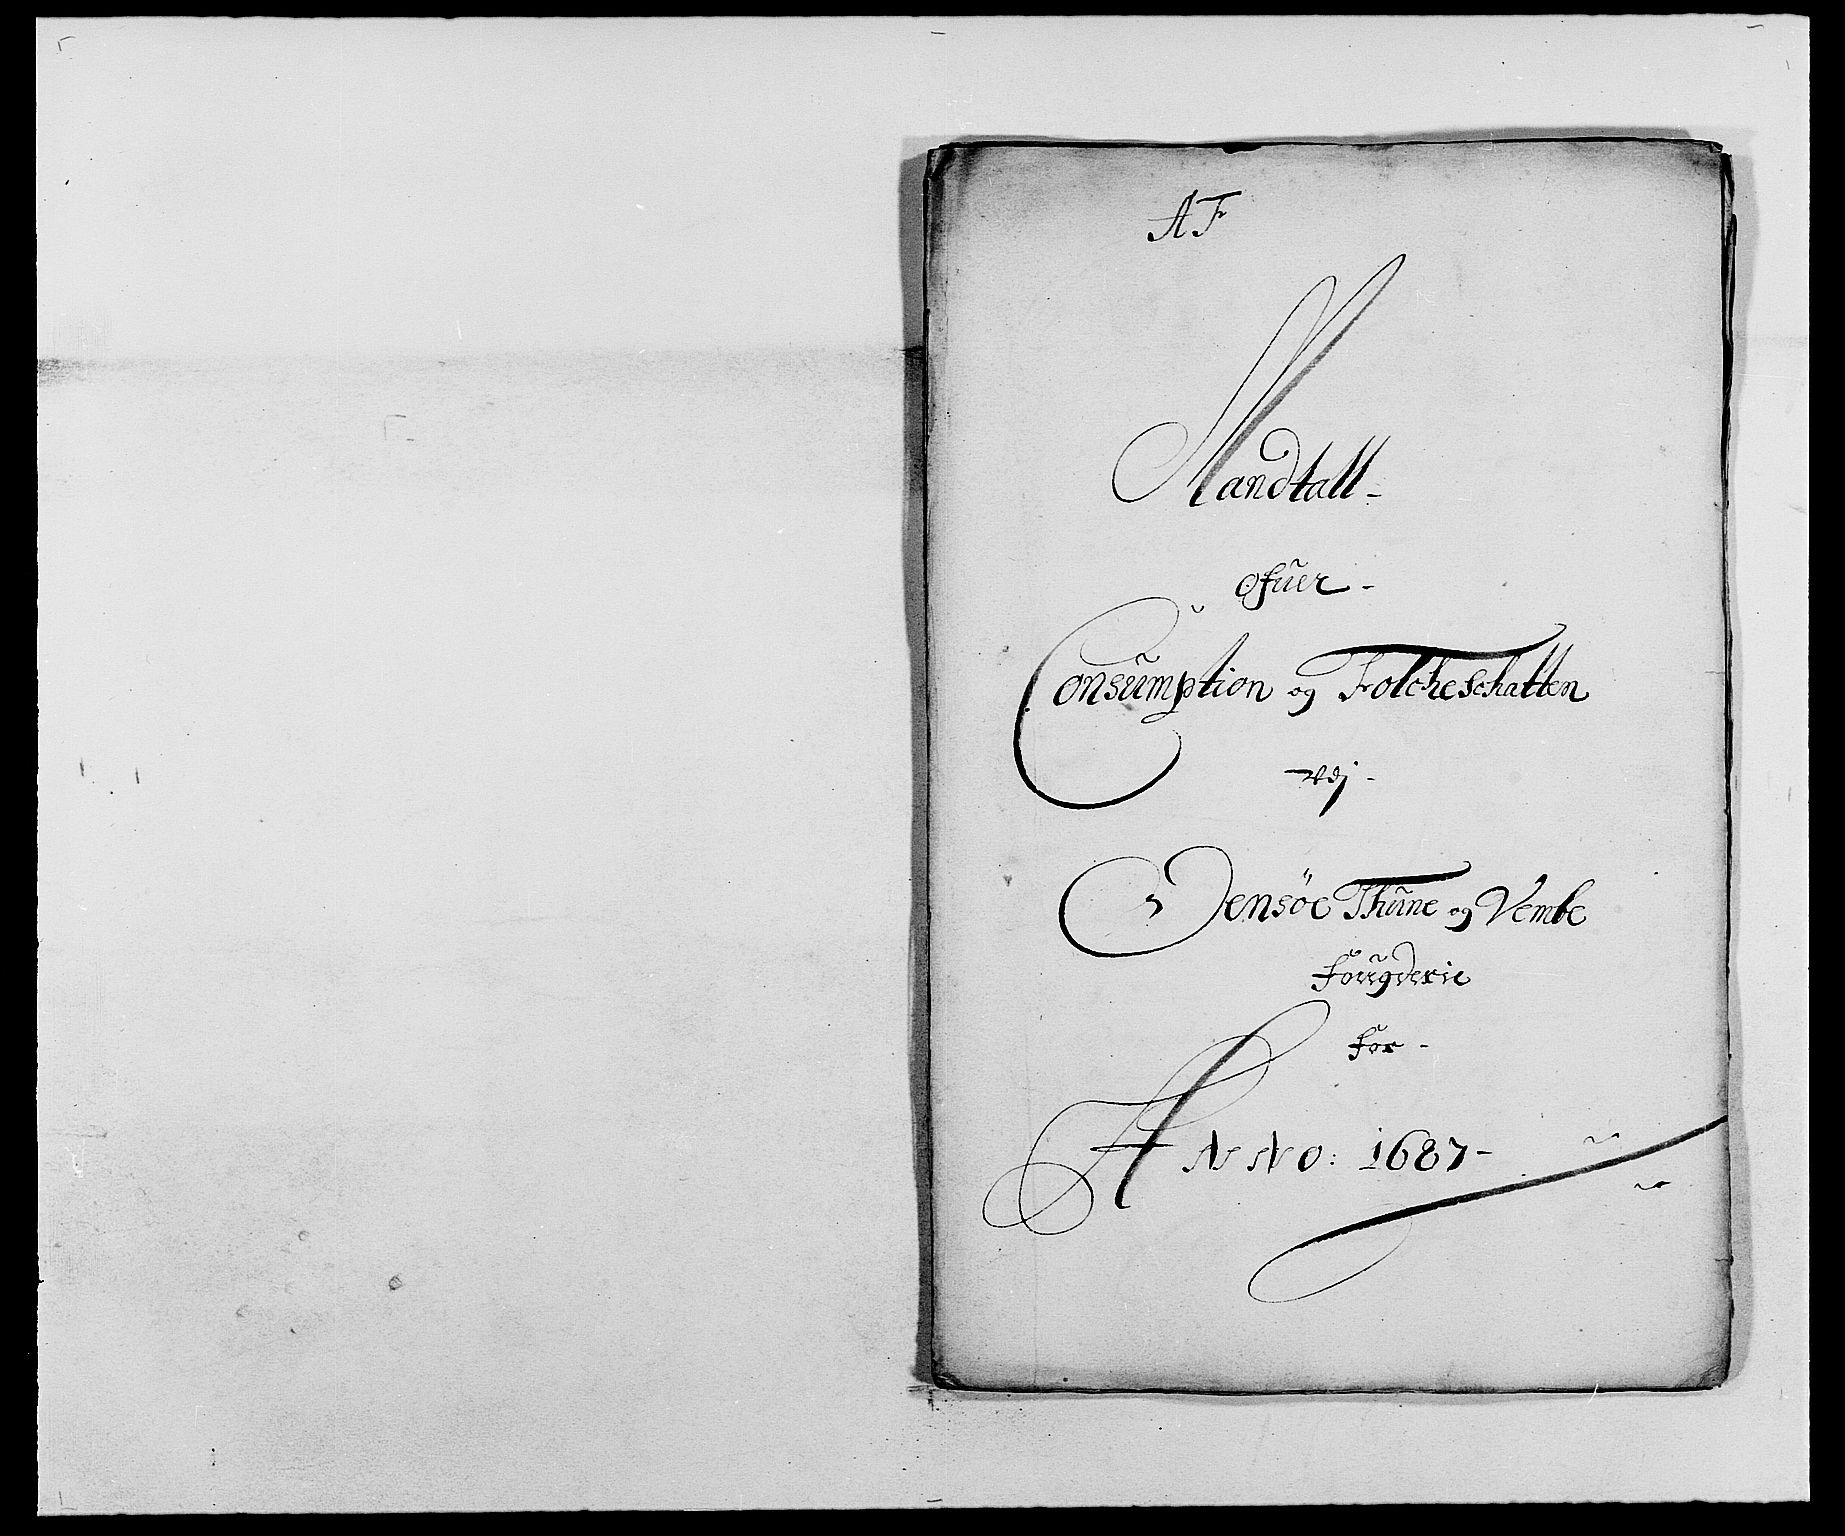 AF
Mandtall
ofuer
Consumption og Folcheschatten
vdj
Jensøe Thune og Vembe
fougderie
for
ANNO: 1687